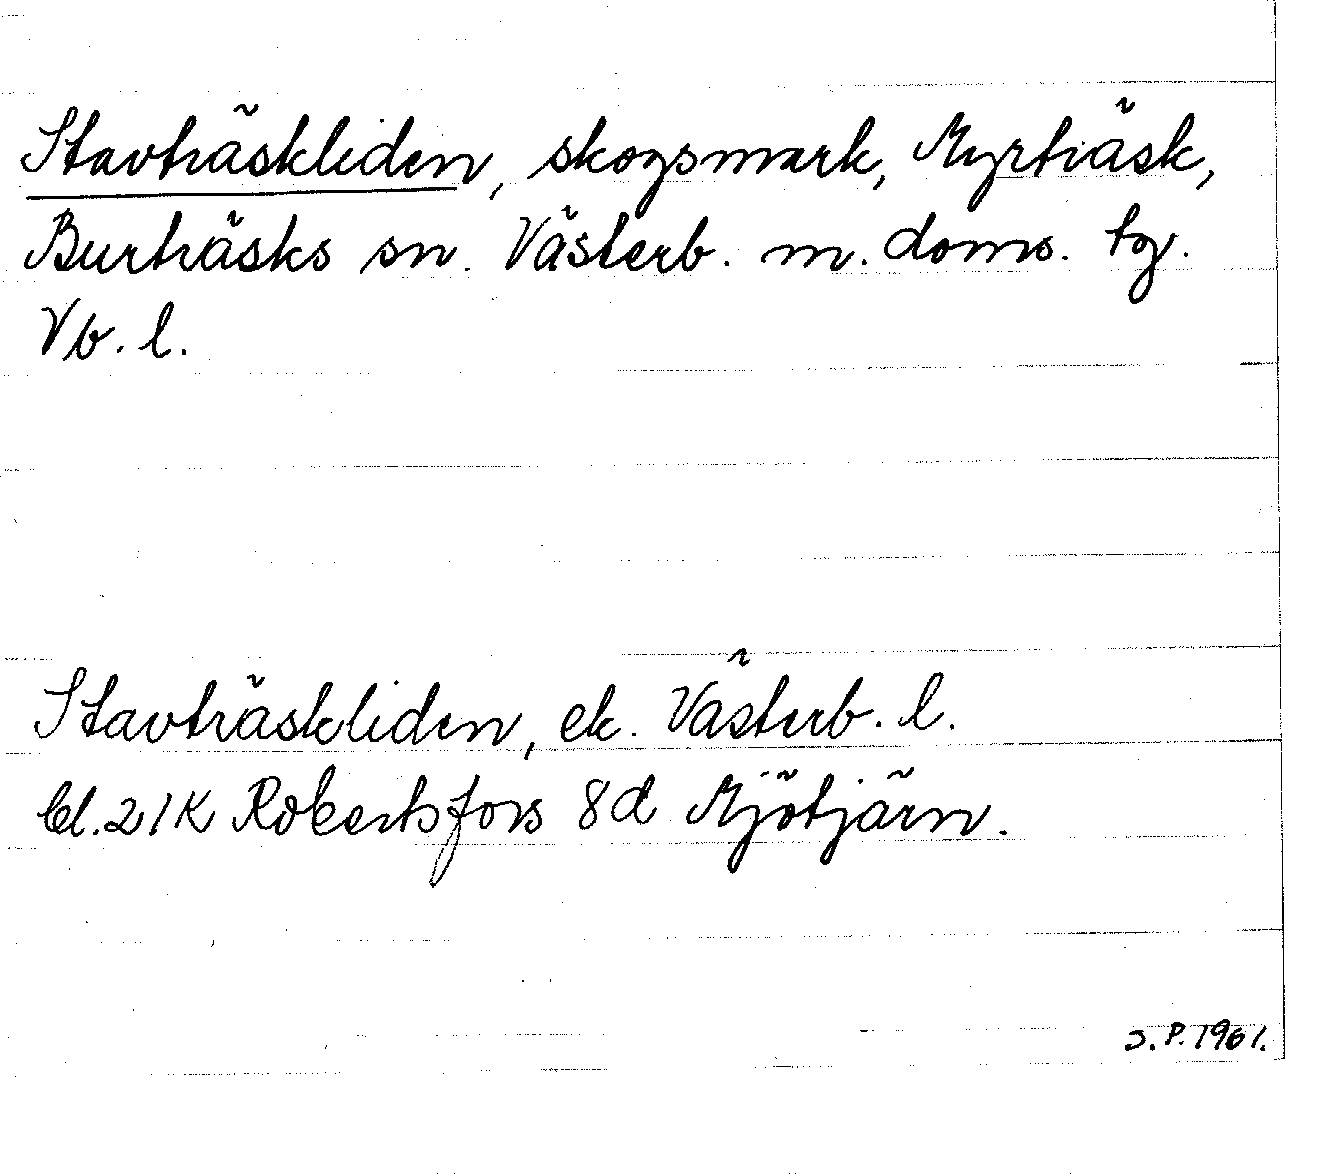 Stavträskliden, skogsmark, Myrträsk,
Burträsks sn. Västerb. m. doms. tg.
Vb. l.
Stavträskliden, ek. Västerb. l.
bl. 21K Robertsfors 8d Mjötjärn.
S.P. 1961.